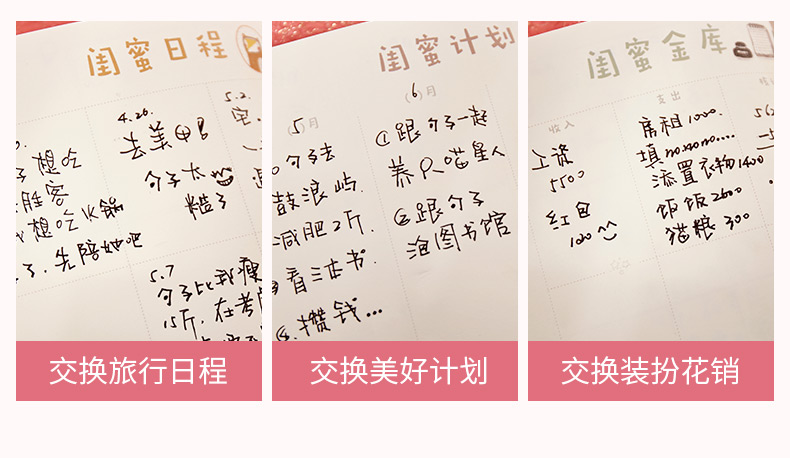 闺蜜日程
4.26.
去美甲!
句子太
糙了
5.2.
宅.
想吃
胜客
想吃火锅
了.先陪她吧
5.7
句子比我瘦
15斤.在考
交换旅行日程
闺蜜计划
5月
句子去
鼓浪屿.
减肥2斤.
看三本书.
④.攒钱...
6月
①跟句子一起
养只喵星人
②跟句子
泡图书馆
交换美好计划
闺蜜金库
收入
工资
5500
红包
1000
支出
房租1000.
填nonono....
添置衣物1400
饭饭2600
猫粮300
交换装扮花销